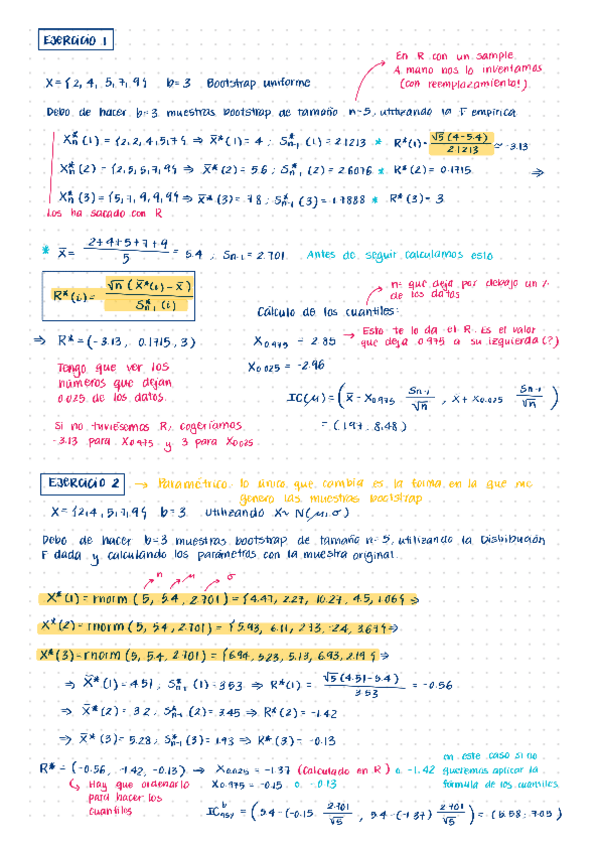 EJERCICIO 1
En R con un sample.
A mano nos lo inventamos
(con reemplazamiento!)
X = {2, 4, 5, 7, 9} b=3 Bootstrap uniforme
Debo de hacer b=3 muestras bootstrap de tamaño n=5, utilizando la F empírica
X*n(1) = {2,2,4,5,7} ⇒ X̄*(1) = 4 ; S*n-1(1) = 2.1213 * R*(1) = √5(4-5.4) / 2.1213 ≈ -3.13
X*n(2) = {2,5,5,7,9} ⇒ X̄*(2) = 5.6 ; S*n-1(2) = 2.6076 * R*(2) = 0.1715 ⇒
X*n(3) = {5,7,9,9,9} ⇒ X̄*(3) = 7.8 ; S*n-1(3) = 1.7888 * R*(3) = 3
Los ha sacado con R
* X̄ = 2+4+5+7+9 / 5 = 5.4 ; Sn-1 = 2.701 Antes de seguir calculamos esto
R*(i) = √n (X̄*(i) - X̄) / S*n-1(i)
nº que deja por debajo un %
de los datos
Cálculo de los cuantiles:
⇒ R* = (-3.13, 0.1715, 3) X0.975 = 2.85 → Esto te lo da el R. Es el valor
que deja 0.975 a su izquierda (?)
Tengo que ver los
números que dejan
0.025 de los datos.
X0.025 = -2.96
IC(μ) = (X̄ - X0.975 Sn-1/√n , X + X0.025 Sn-1/√n)
= (1.97, 8.48)
Si no tuviésemos R, cogeríamos
-3.13 para X0.975 y 3 para X0.025
EJERCICIO 2 → Paramétrico. lo único que cambia es la forma en la que me
genero las muestras bootstrap
X = {2,4,5,7,9} b=3 utilizando X~N(μ,σ)
Debo de hacer b=3 muestras bootstrap de tamaño n=5, utilizando la Distribución
F dada y calculando los parámetros con la muestra original.
n μ σ
X*(1) = rnorm (5, 5.4, 2.701) = {4.47, 2.27, 10.27, 4.5, 1.06} ⇒
X*(2) = rnorm (5, 5.4, 2.701) = {5.93, 6.11, 2.73, -2.4, 3.67} ⇒
X*(3) = rnorm (5, 5.4, 2.701) = {6.94, 5.23, 5.13, 6.93, 2.19} ⇒
⇒ X̄*(1) = 4.51 ; S*n-1(1) = 3.53 ⇒ R*(1) = √5(4.51-5.4) / 3.53 = -0.56
⇒ X̄*(2) = 3.2 ; S*n-1(2) = 3.45 ⇒ R*(2) = -1.42
⇒ X̄*(3) = 5.28 ; S*n-1(3) = 1.93 ⇒ R*(3) = -0.13
R* = (-0.56, -1.42, -0.13) → X0.025 = -1.37 (Calculado en R) o -1.42
en este caso si no
queremos aplicar la
fórmula de los cuantiles
Hay que ordenarlo
para hacer los
cuantiles
X0.975 = -0.15 o -0.13
IC b 95% = (5.4 - (-0.15) 2.701/√5 , 5.4 - (-1.37) 2.701/√5) = (5.58, 7.05)